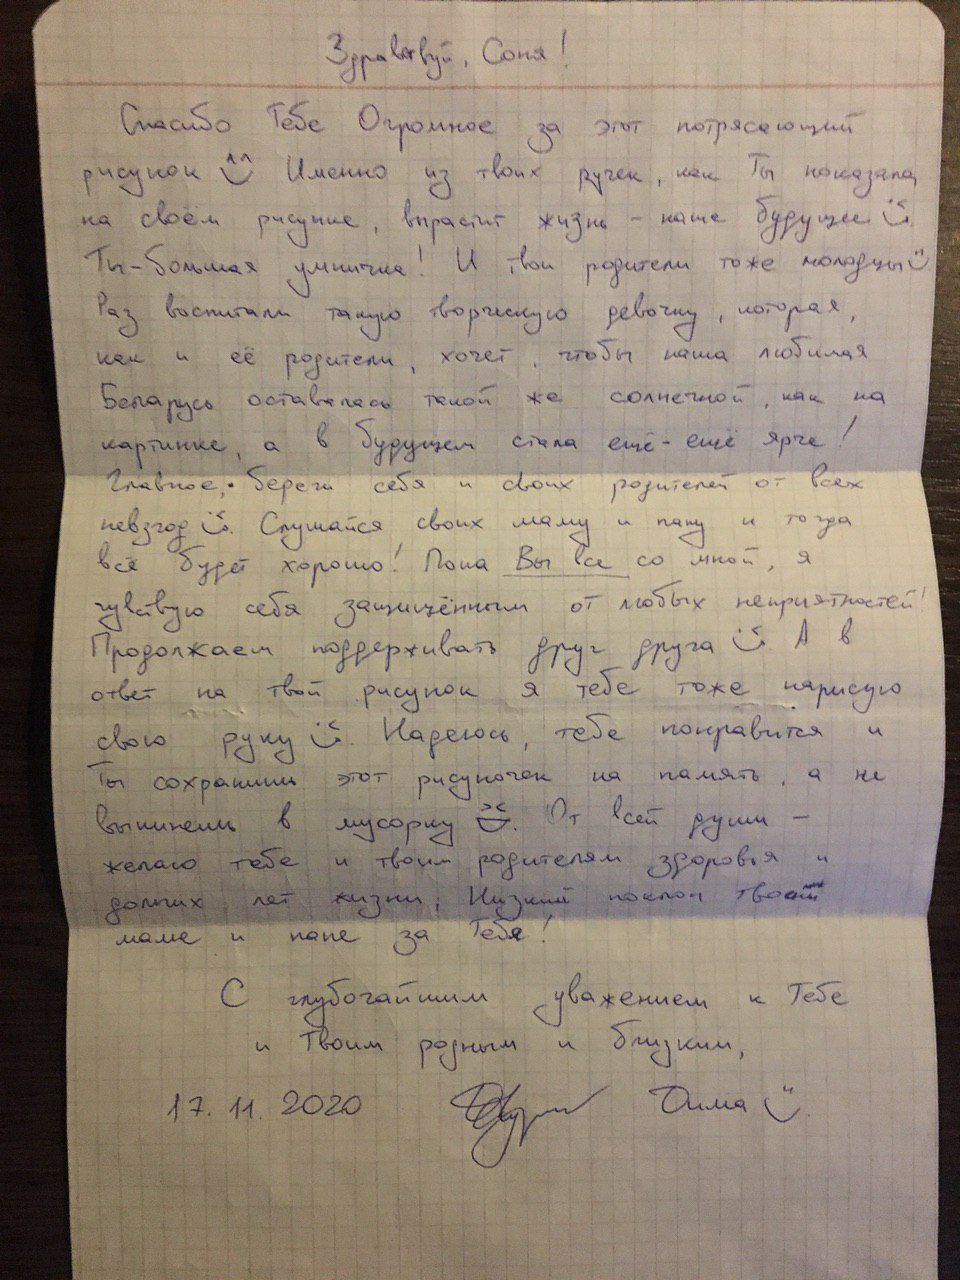 Здравствуй, Соня!
Спасибо Тебе Огромное за этот потрясающий
рисунок Именно из твоих ручек, как Ты показала
на своём рисунке, вырастит жизнь – наше будущее.
Ты – большая умничка! И твои родители тоже молодцы
Раз воспитали такую творческую девочку, которая,
как и её родители, хочет, чтобы наша любимая
Беларусь оставалась такой же солнечной, как на
картинке, а в будущем стала ещё-ещё ярче!
Главное, береги себя и своих родителей от всех
невзгод. Слушайся своих маму и папу и тогда
всё будет хорошо! Пока Вы все со мной, я
чувствую себя защищённым от любых неприятностей!
Продолжаем поддерживать друг друга. А в
ответ на твой рисунок я тебе тоже нарисую
свою руку. Надеюсь, тебе понравится и
Ты сохранишь этот рисуночек на память, а не
выкинешь в мусорку. От всей души –
желаю тебе и твоим родителям здоровья и
долгих лет жизни, Низкий поклон твоей
маме и папе за Тебя!
С глубочайшим уважением к Тебе
и Твоим родным и близким,
17.11.2020 Дима